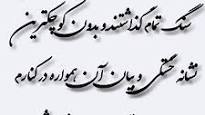 سنگ تمام گذاشتند و بدون کوچکترین
نشانه خستگی و بیان آن همواره در کنارم